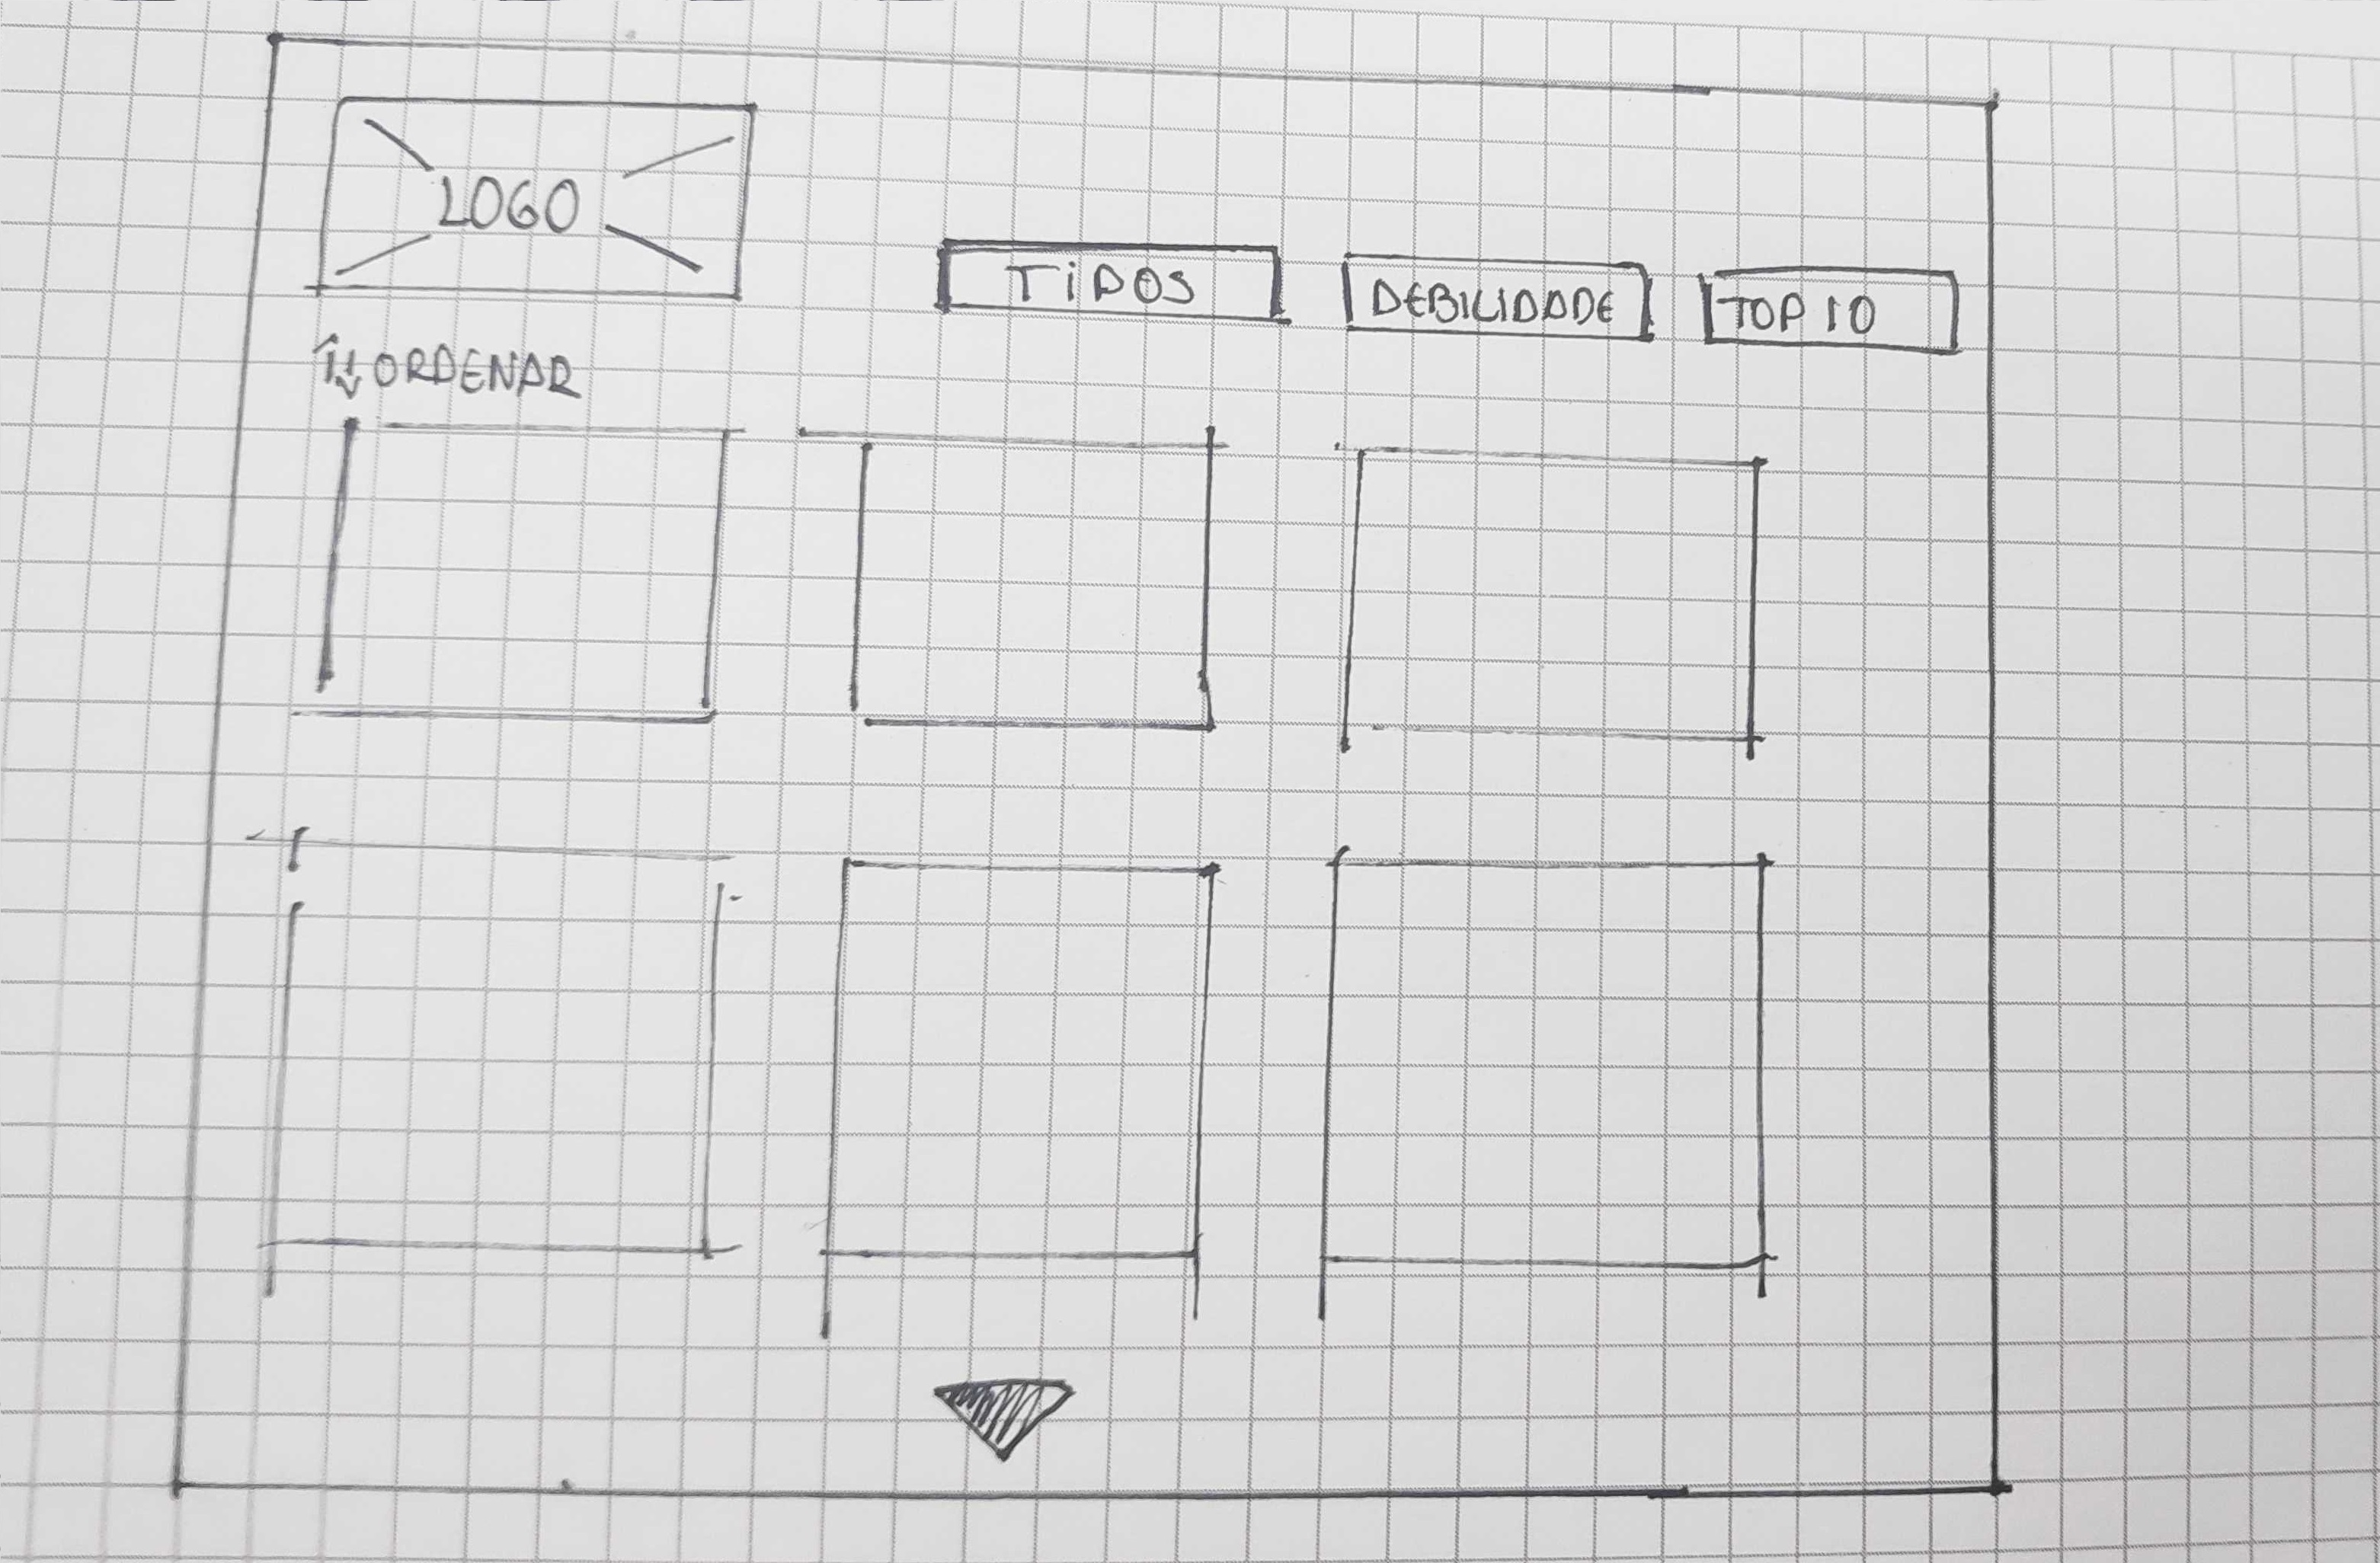 LOGO
TiPOS
DEBILIDADE
TOP 10
↑↓ ORDENAR